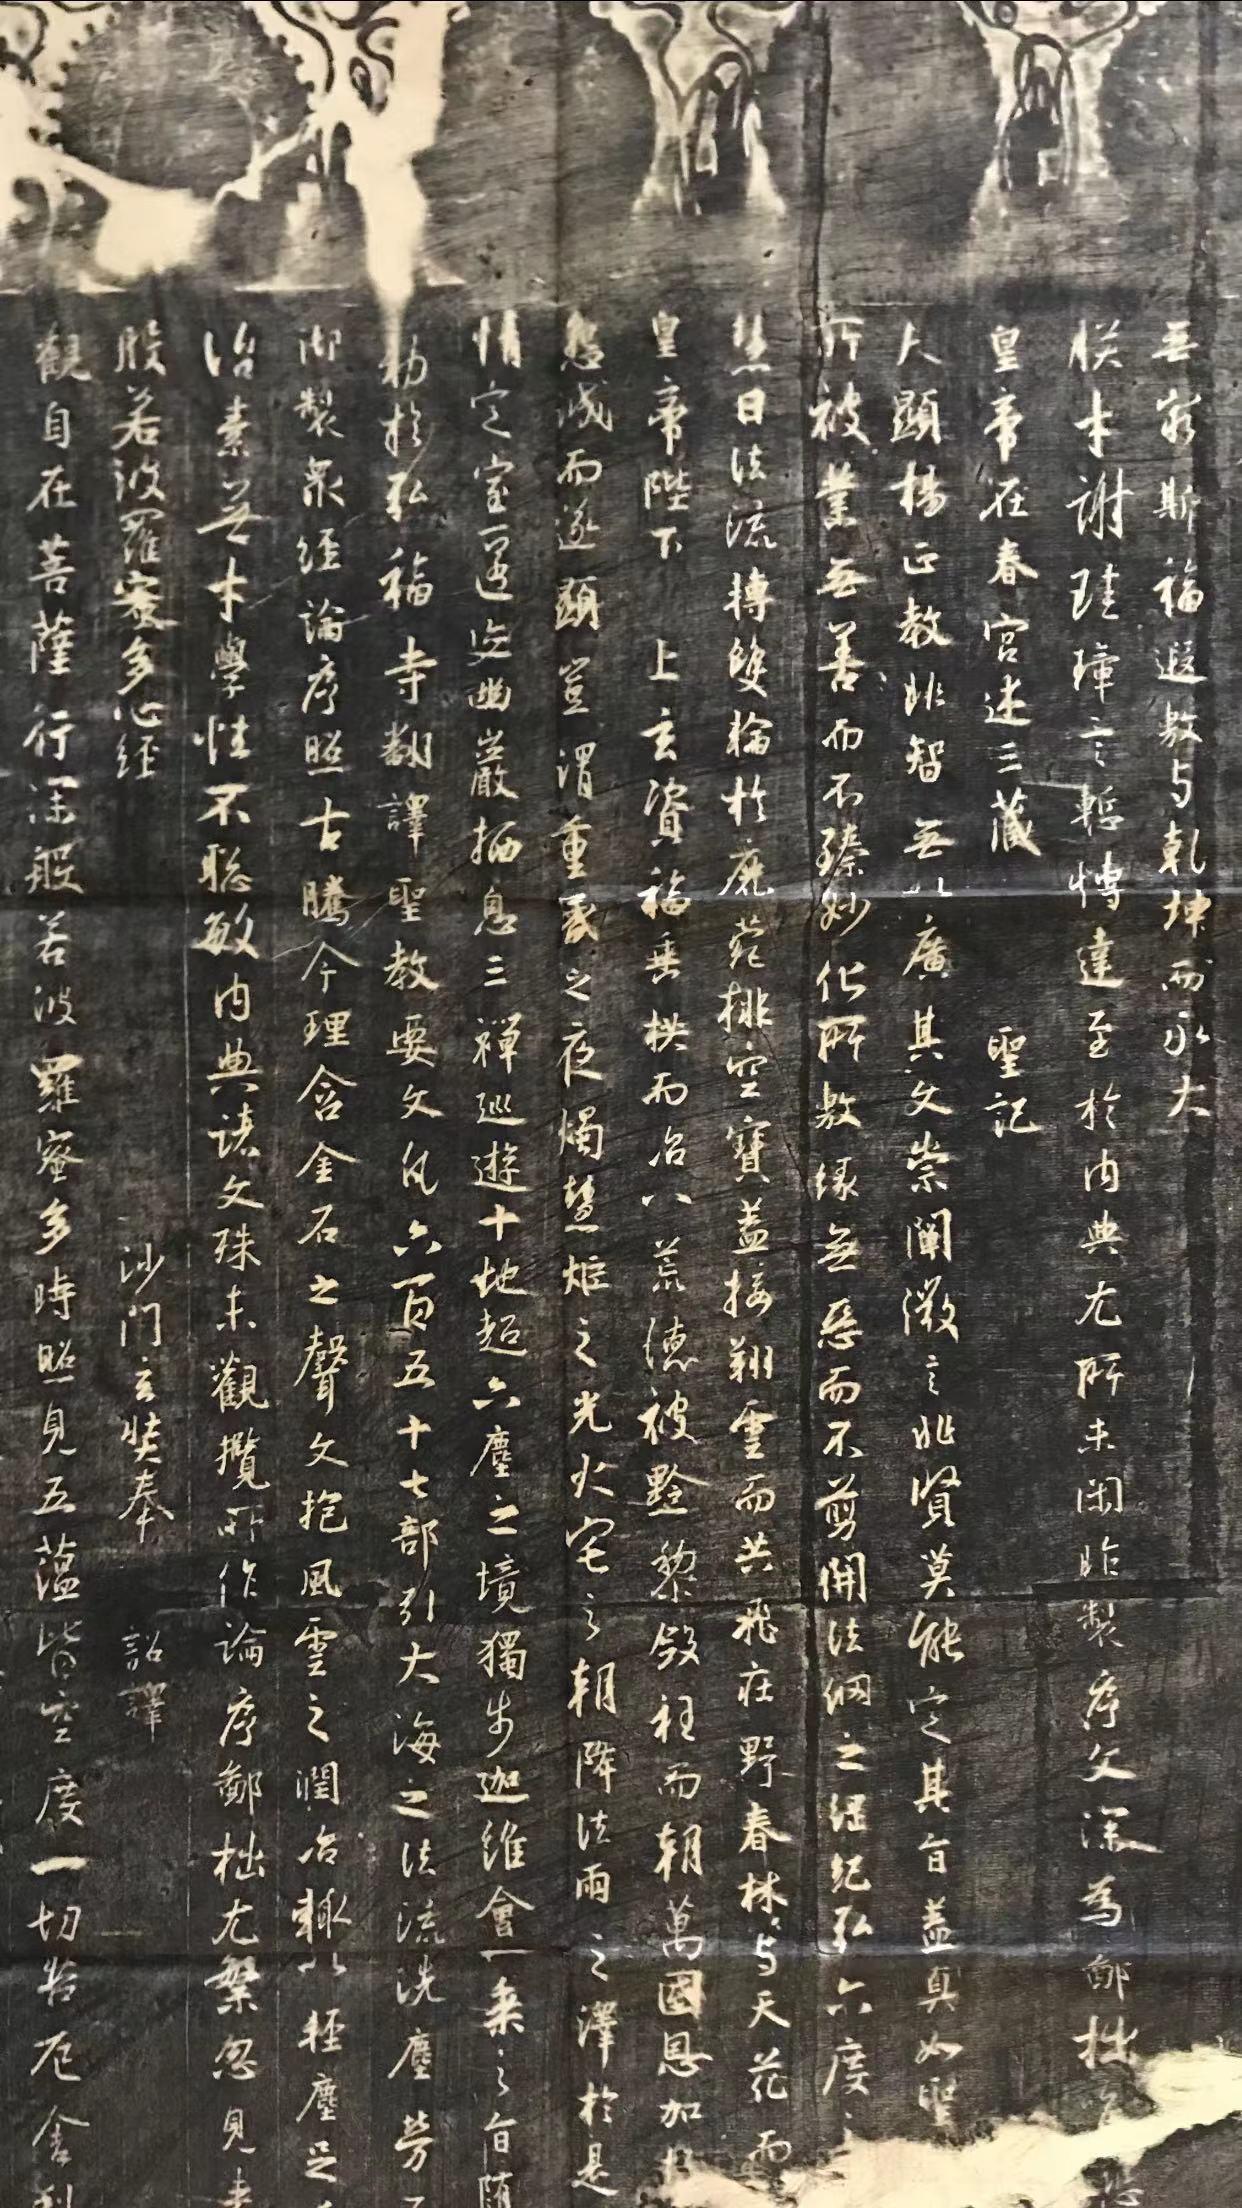 無窮斯福遐敷与乾坤而永大
朕才謝珪璋言慙博達至於内典尤所未閑昨製序文深為鄙拙唯恐
皇帝在春宮述三藏 聖記
夫顯揚正教非智無以廣其文崇闡微言非賢莫能定其旨蓋真如聖
所被業無善而不臻妙化所敷緣無惡而不剪開法網之綱紀弘六度
慧日法流轉雙輪於鹿菀排空寶蓋接翔雲而共飛庄野春林与天花而
皇帝陛下 上玄資福垂拱而治八荒德被黔黎斂衽而朝萬國恩加
懇誠而遂顯豈謂重昏之夜燭慧炬之光火宅之朝降法雨之澤於是
情定室匿迹幽巖栖息三禪巡遊十地超六塵之境獨步迦維會一乘之旨隨
勑於弘福寺翻譯聖教要文凡六百五十七部引大海之法流洗塵勞
御製衆經論序照古騰今理含金石之聲文抱風雲之潤治輒以輕塵足
治素無才學性不聡敏内典諸文殊未觀攬所作論序鄙拙尤繁忽見来
般若波羅蜜多心經 沙門玄奘奉 詔譯
觀自在菩薩行深般若波羅蜜多時照見五蘊皆空度一切苦厄舍利